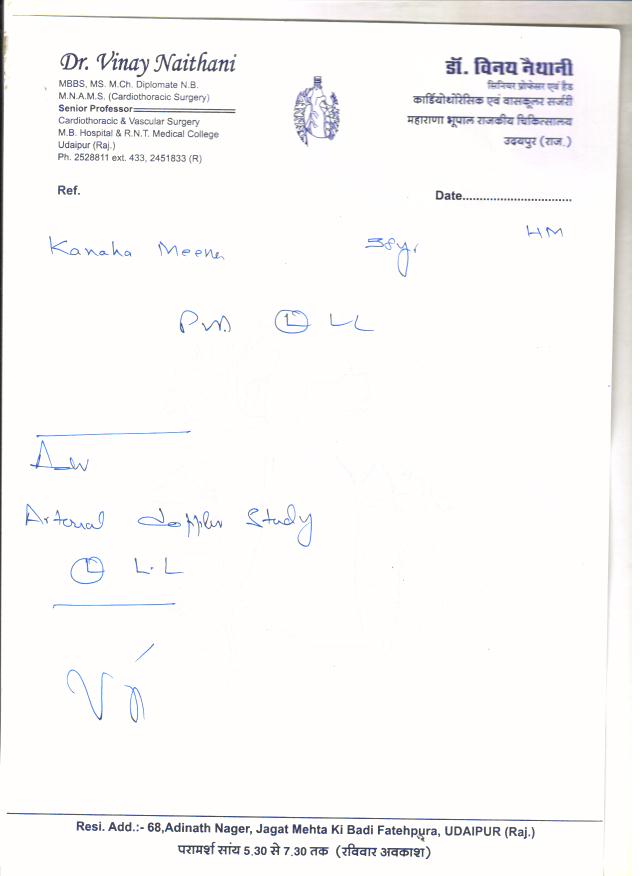 Dr. Vinay Naithani
MBBS, MS. M.Ch. Diplomate N.B.
M.N.A.M.S. (Cardiothoracic Surgery)
Senior Professor
Cardiothoracic & Vascular Surgery
M.B. Hospital & R.N.T. Medical College
Udaipur (Raj.)
Ph. 2528811 ext. 433, 2451833 (R)
डॉ. विनय नैथानी
सिनियर प्रोफेसर एवं हैड
कार्डियोथोरेसिक एवं वासकूलर सर्जरी
महाराणा भूपाल राजकीय चिकित्सालय
उदयपुर (राज.)
Ref.
Date................................
Kanaha Meena 38yr HM
Ⓛ LL
Arterial doppler Study
Ⓛ L.L
Resi. Add.:- 68,Adinath Nager, Jagat Mehta Ki Badi Fatehpura, UDAIPUR (Raj.)
परामर्श सांय 5.30 से 7.30 तक (रविवार अवकाश)